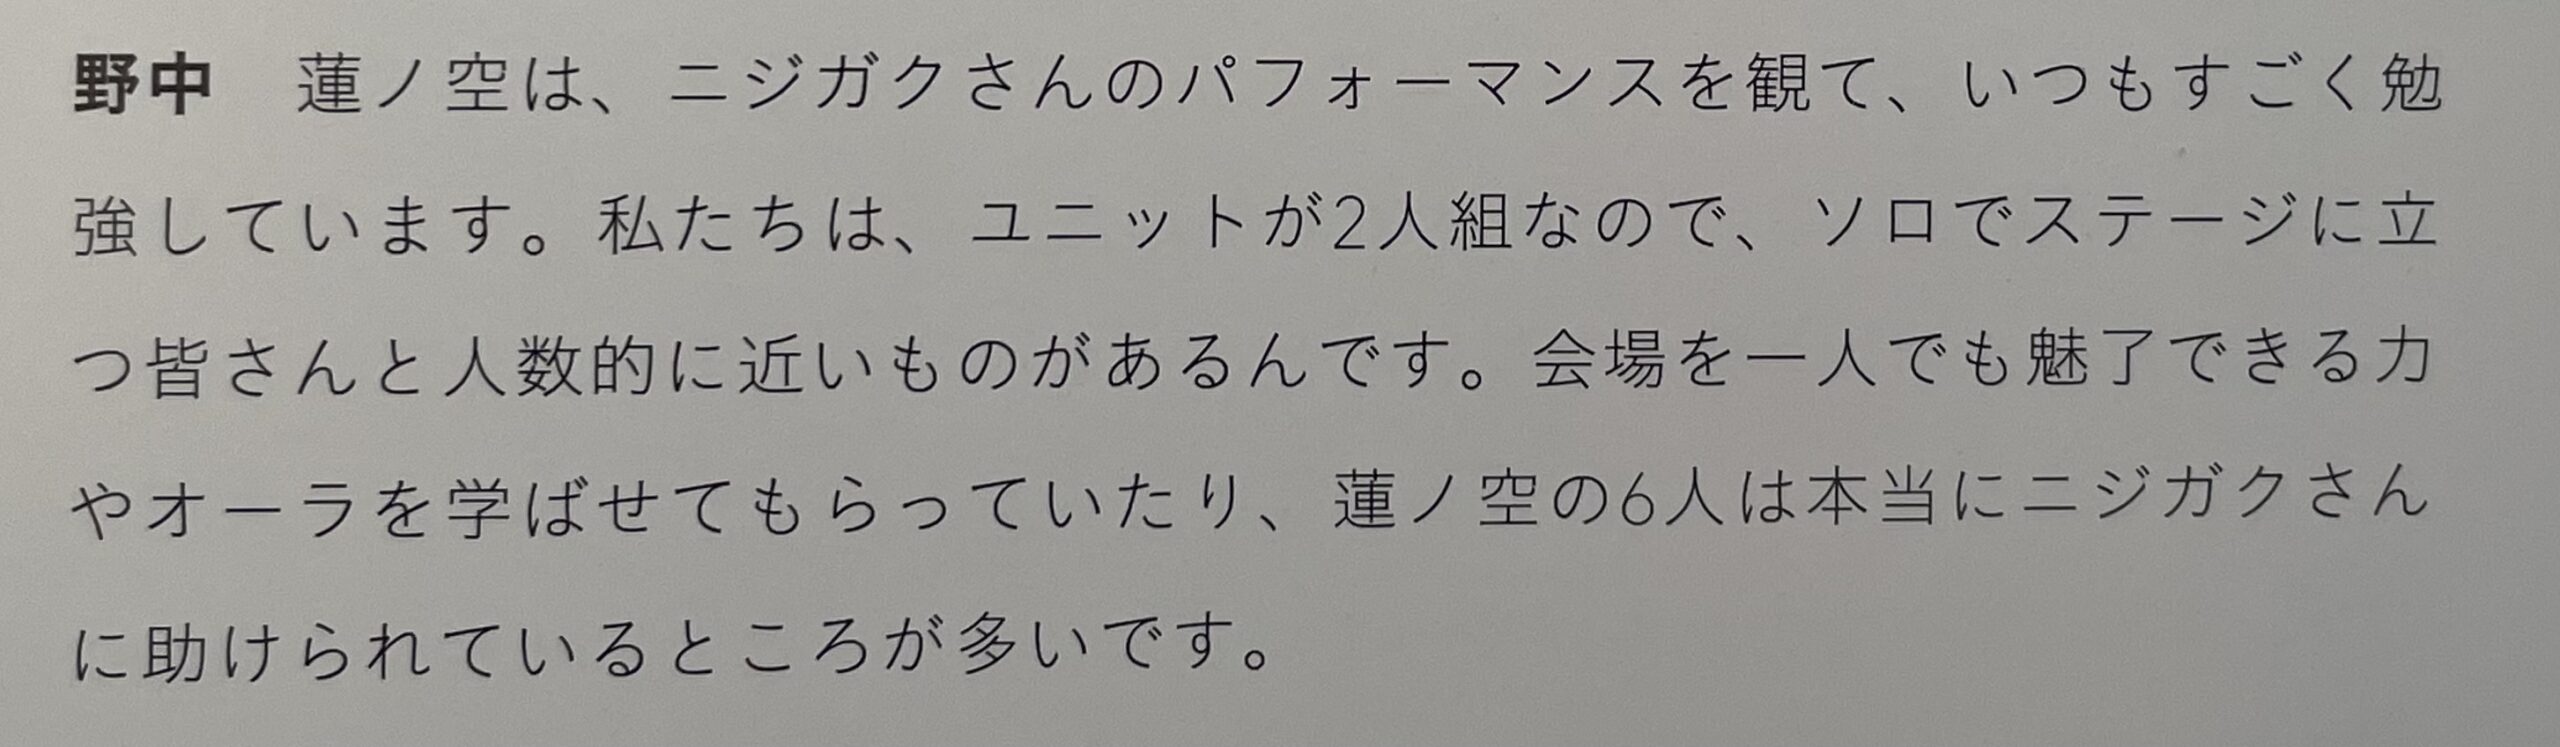 野中　蓮ノ空は、ニジガクさんのパフォーマンスを観て、いつもすごく勉
強しています。私たちは、ユニットが2人組なので、ソロでステージに立
つ皆さんと人数的に近いものがあるんです。会場を一人でも魅了できる力
やオーラを学ばせてもらっていたり、蓮ノ空の6人は本当にニジガクさん
に助けられているところが多いです。